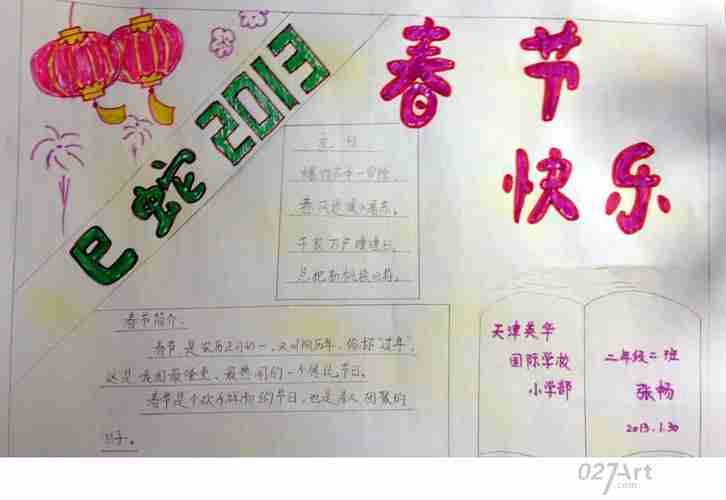 春节
快乐
巳蛇2013
元日
爆竹声中一岁除,
春风送暖入屠苏。
千家万户曈曈日,
总把新桃换旧符。
春节简介:
春节是农历正月初一,又叫阴历年,俗称"过年",
这是我国最隆重、最热闹的一个传统节日。
春节是个欢乐祥和的节日,也是亲人团聚的
日子。
天津英华
国际学校
小学部
二年级二班
张畅
2013.1.30
027Art
.com